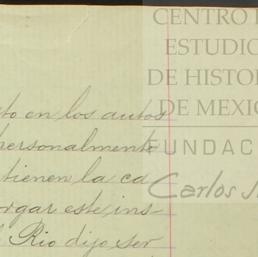 CENTRO
ESTUDIO
DE HISTOR
DE MEXIC
FUNDAC
Carlos
to en los autos
personalmente
tienen la ca
orgar este ins-
Rio dijo ser